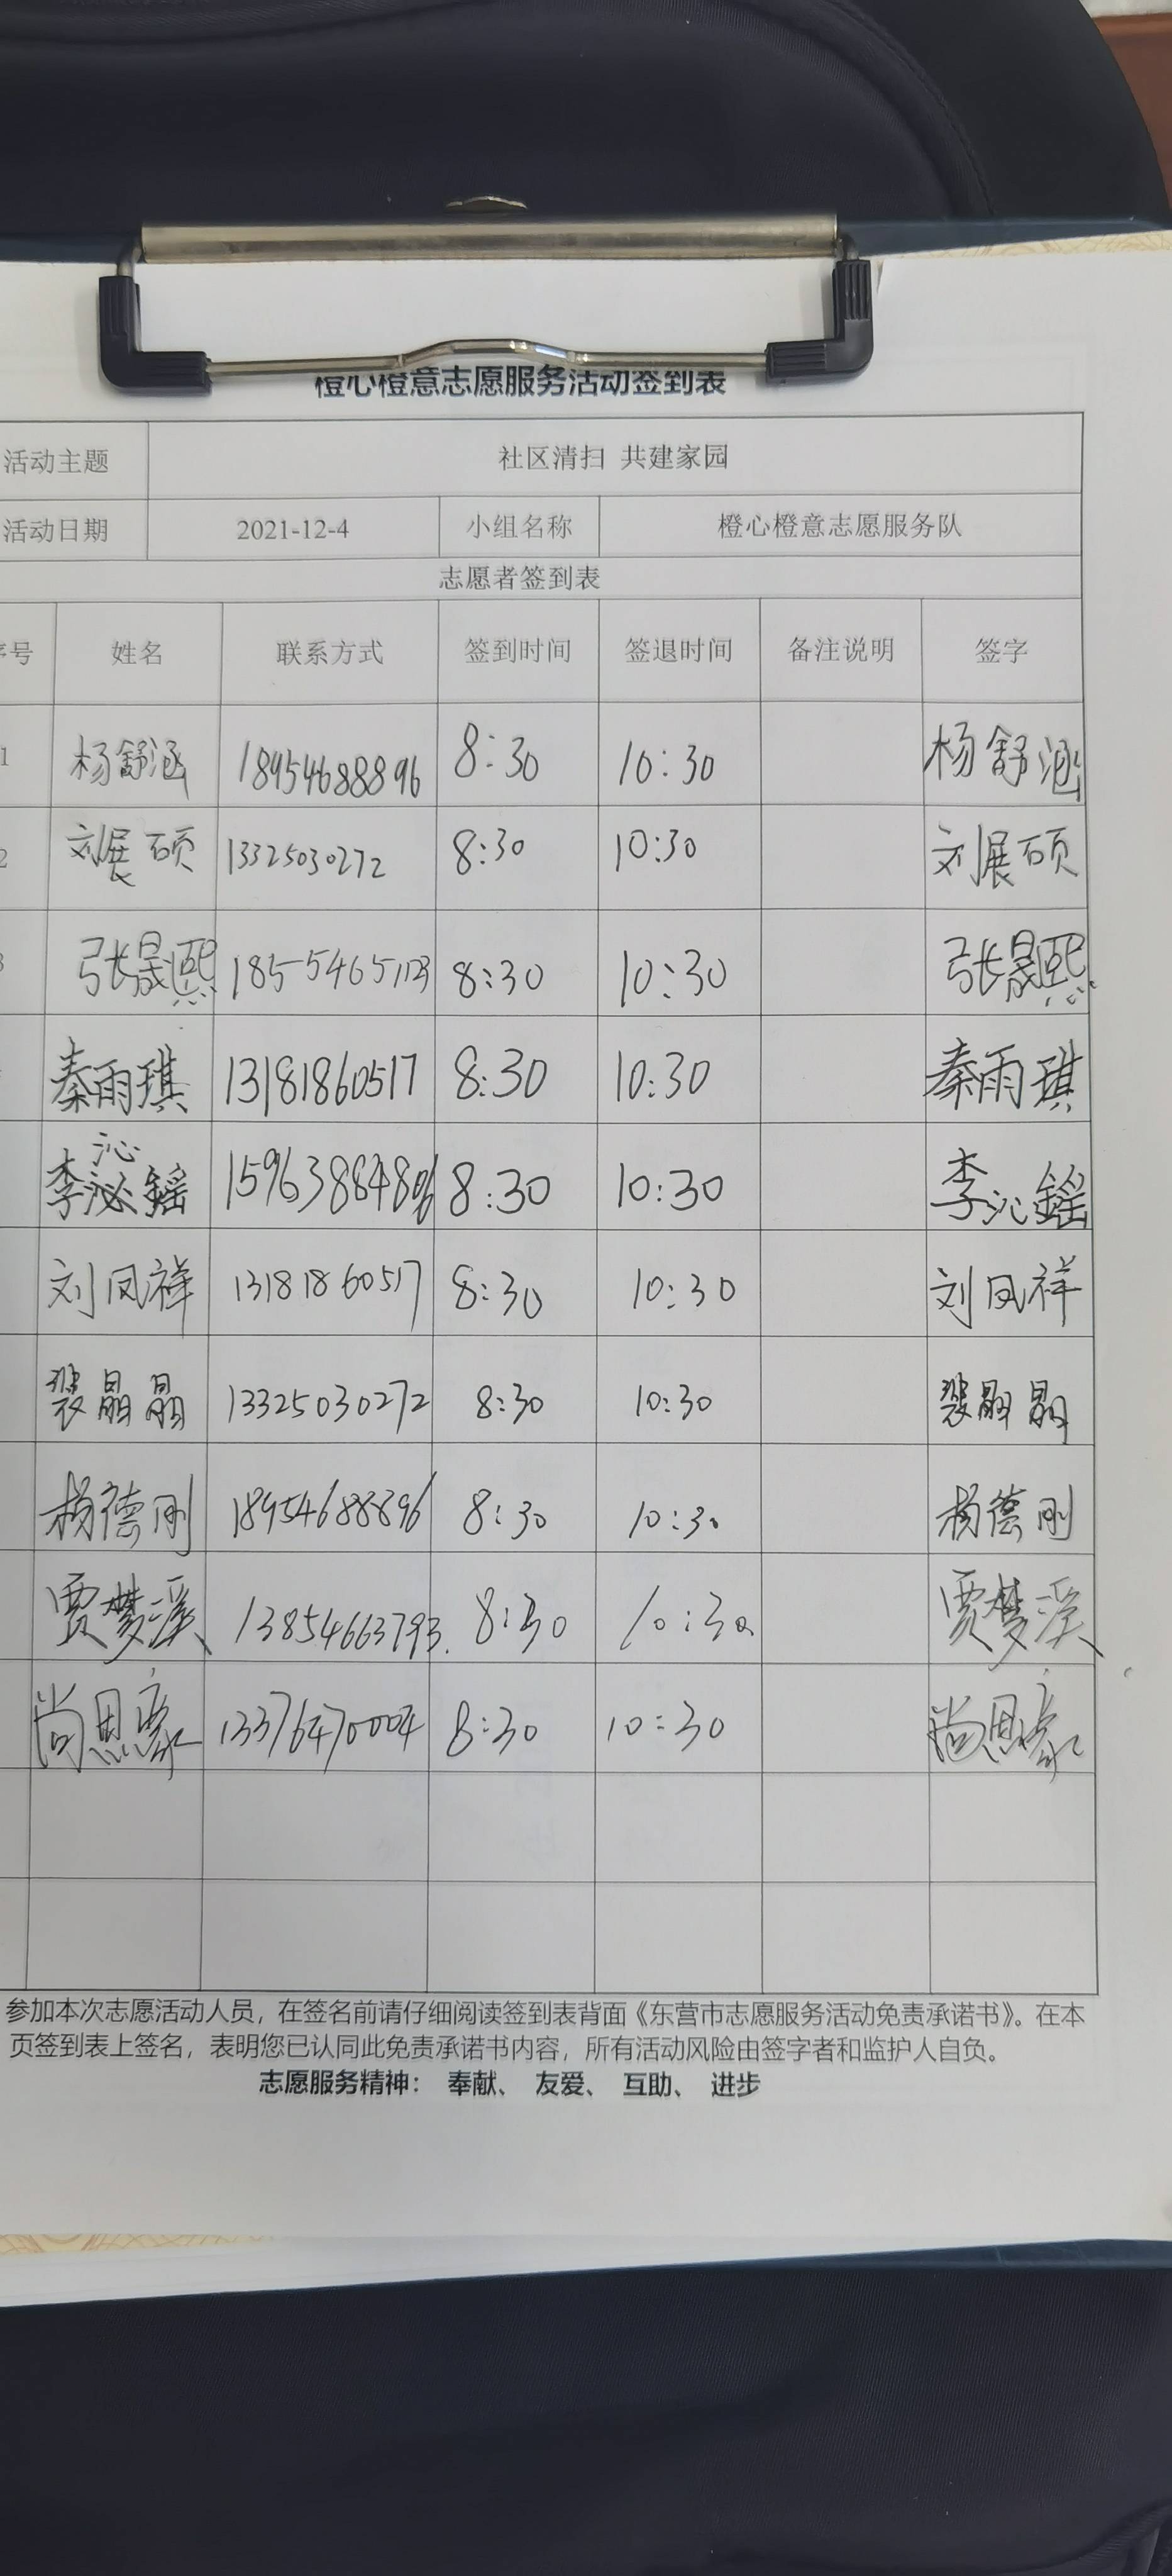 橙心橙意志愿服务活动签到表
活动主题 社区清扫 共建家园
活动日期 2021-12-4 小组名称 橙心橙意志愿服务队
志愿者签到表
序号 姓名 联系方式 签到时间 签退时间 备注说明 签字
1 杨舒涵 18954688896 8:30 10:30 杨舒涵
2 刘展硕 13325030272 8:30 10:30 刘展硕
3 张晟熙 18554651123 8:30 10:30 张晟熙
秦雨琪 13181860517 8:30 10:30 秦雨琪
沁
李 鎐 8:30 10:30 李沁鎐
刘凤祥 13181860517 8:30 10:30 刘凤祥
裴晶晶 13325030272 8:30 10:30 裴晶晶
杨德刚 18954688896 8:30 10:30 杨德刚
贾梦溪 13854663793. 8:30 10:30 贾梦溪
尚恩豪 13376470004 8:30 10:30 尚恩豪
参加本次志愿活动人员，在签名前请仔细阅读签到表背面《东营市志愿服务活动免责承诺书》。在本
页签到表上签名，表明您已认同此免责承诺书内容，所有活动风险由签字者和监护人自负。
志愿服务精神： 奉献、 友爱、 互助、 进步